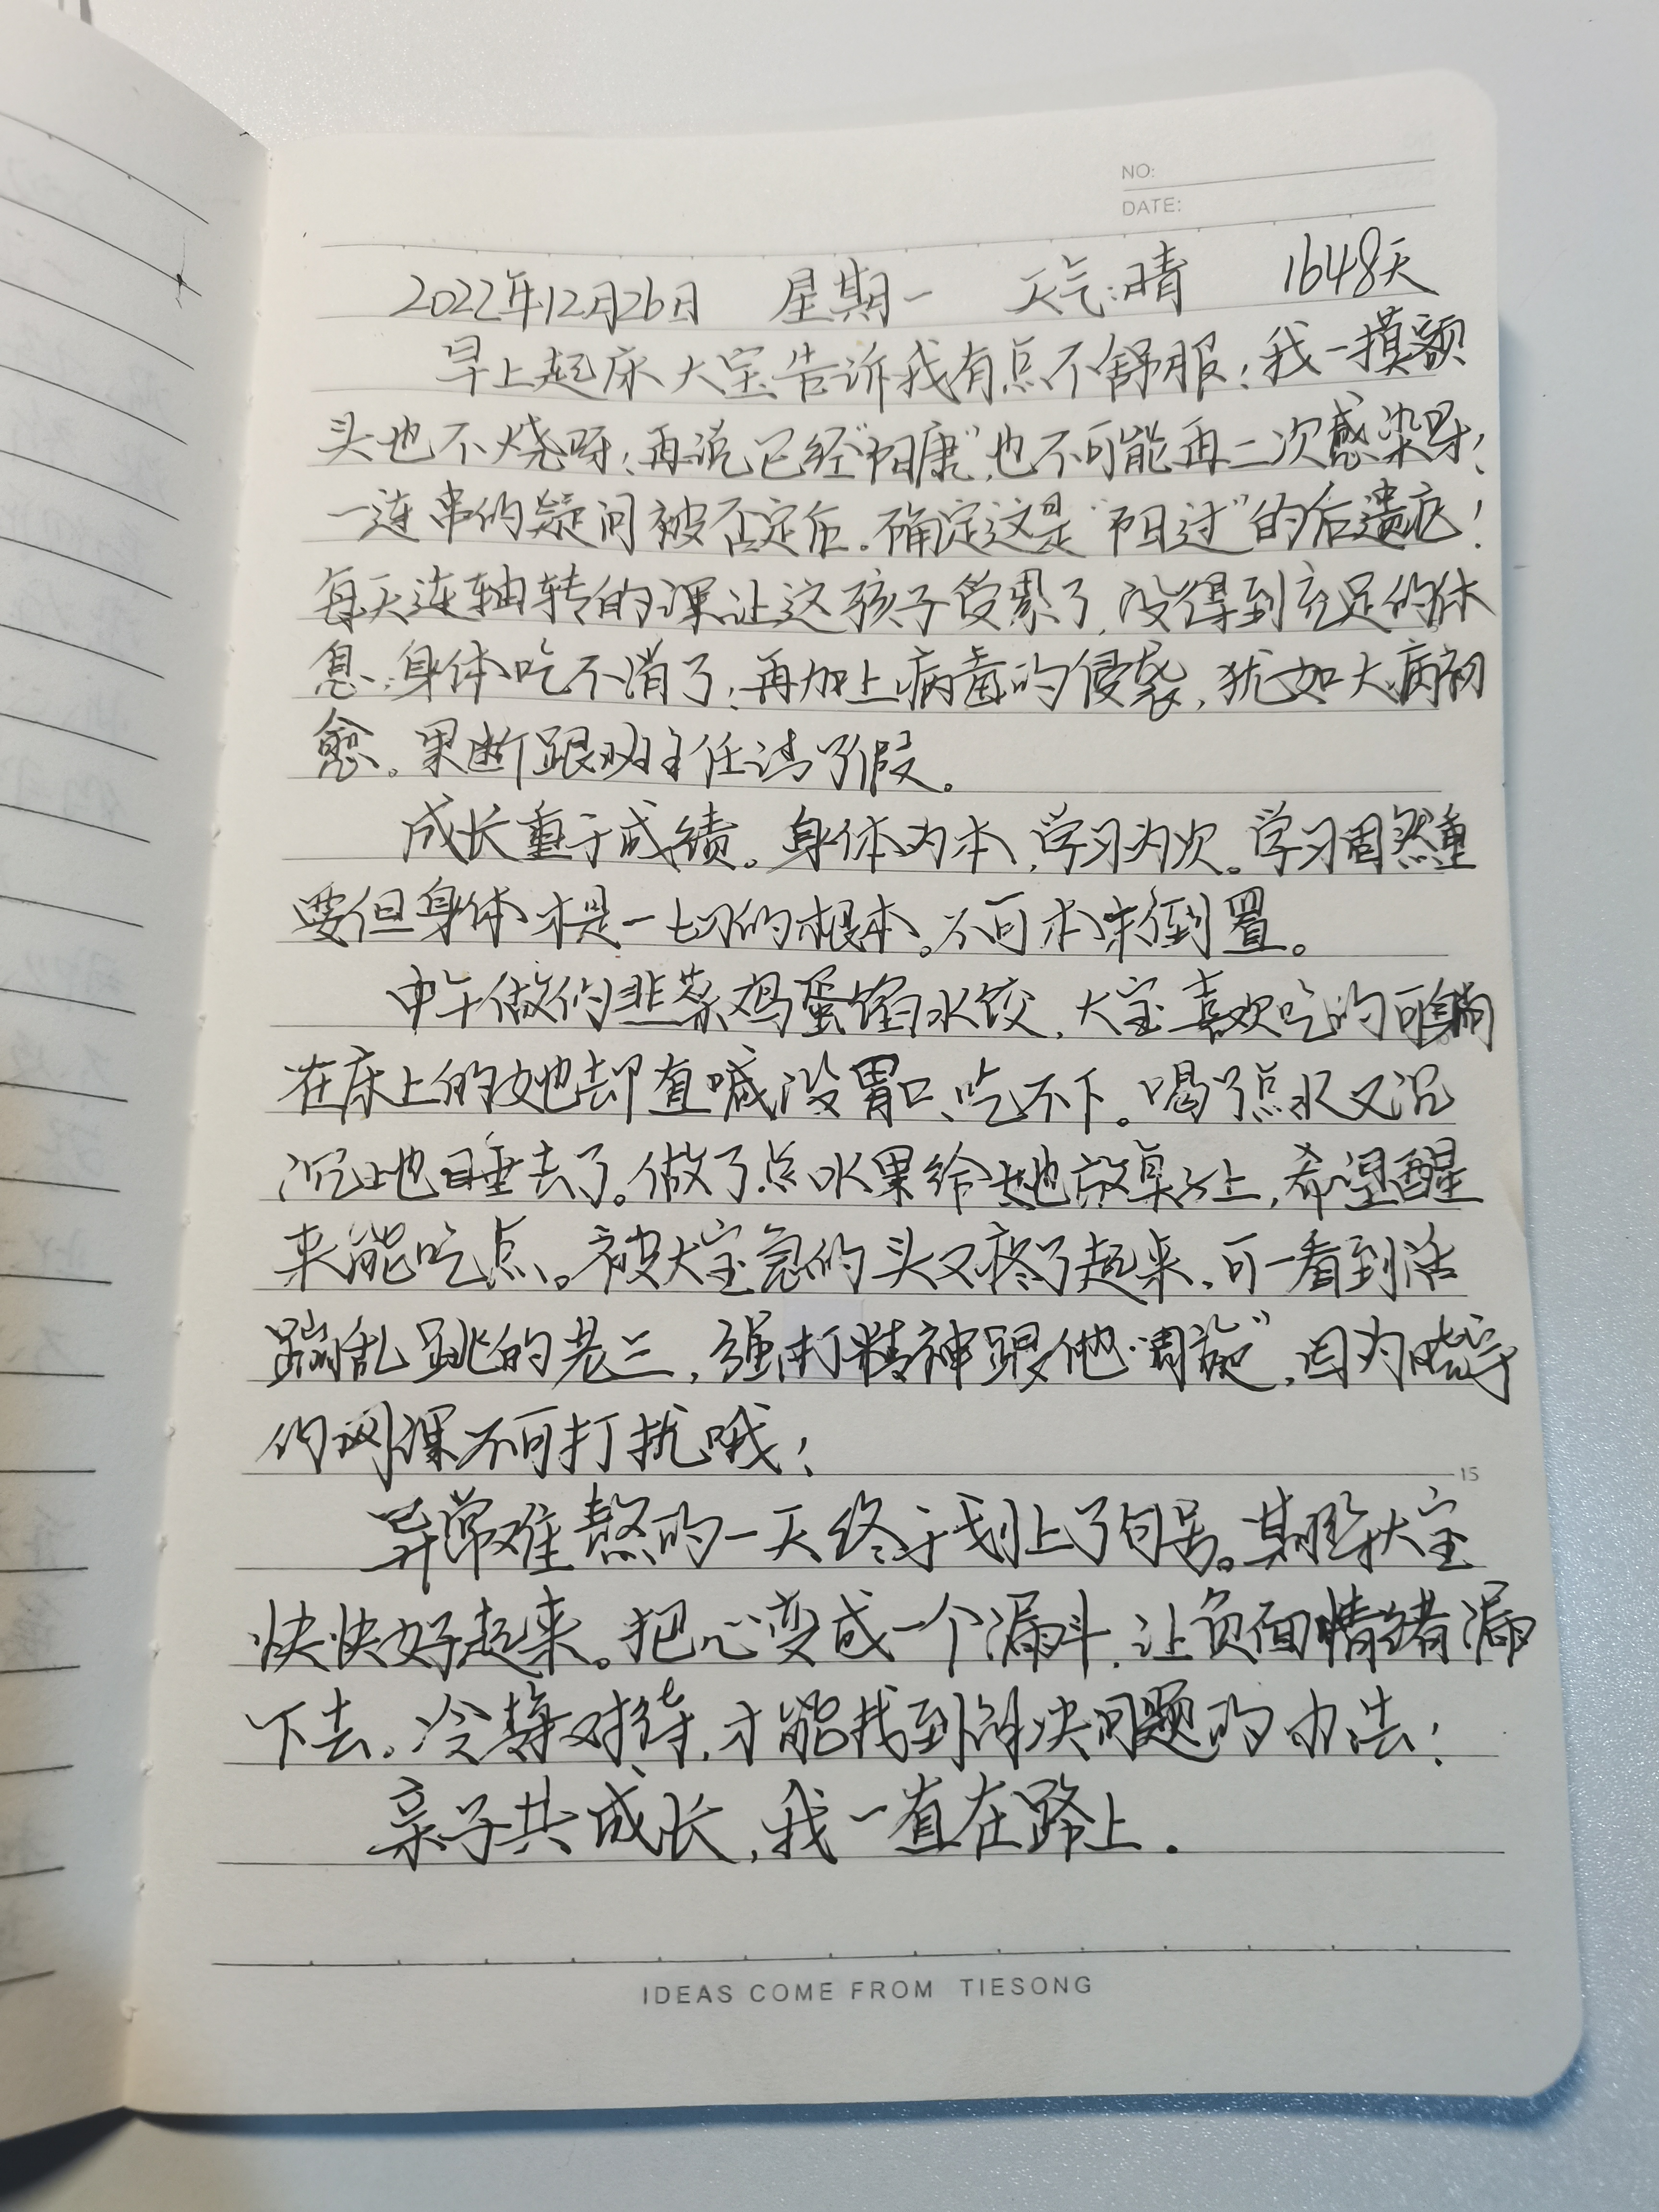 NO:
DATE:
2022年12月26日 星期一 天气:晴 1648天
早上起床大宝告诉我有点不舒服;我一摸额
头也不烧呀;再说已经“阳康”,也不可能再二次感染呀!
一连串的疑问被否定后。确定这是“阳过”的后遗症!
每天连轴转的课让这孩子受累了,没得到充足的休
息,身体吃不消了;再加上病毒的侵袭,犹如大病初
愈。果断跟班主任请了假。
成长重于成绩。身体为本,学习为次。学习固然重
要但身体才是一切的根本。不可本末倒置。
中午做的韭菜鸡蛋馅水饺,大宝喜欢吃的可躺
在床上的她却直喊没胃口、吃不下。喝了点水又沉
沉地睡去了。做了点水果给她放桌上,希望醒
来能吃点。被大宝急的头又疼了起来,可一看到活
蹦乱跳的老三,强打精神跟他“周旋”,因为
的网课不可打扰哦!
异常难熬的一天终于划上了句号。期盼大宝
快快好起来。把心变成一个漏斗,让负面情绪漏
下去。冷静对待,才能找到解决问题的办法!
亲子共成长,我一直在路上.
15
IDEAS COME FROM TIESONG